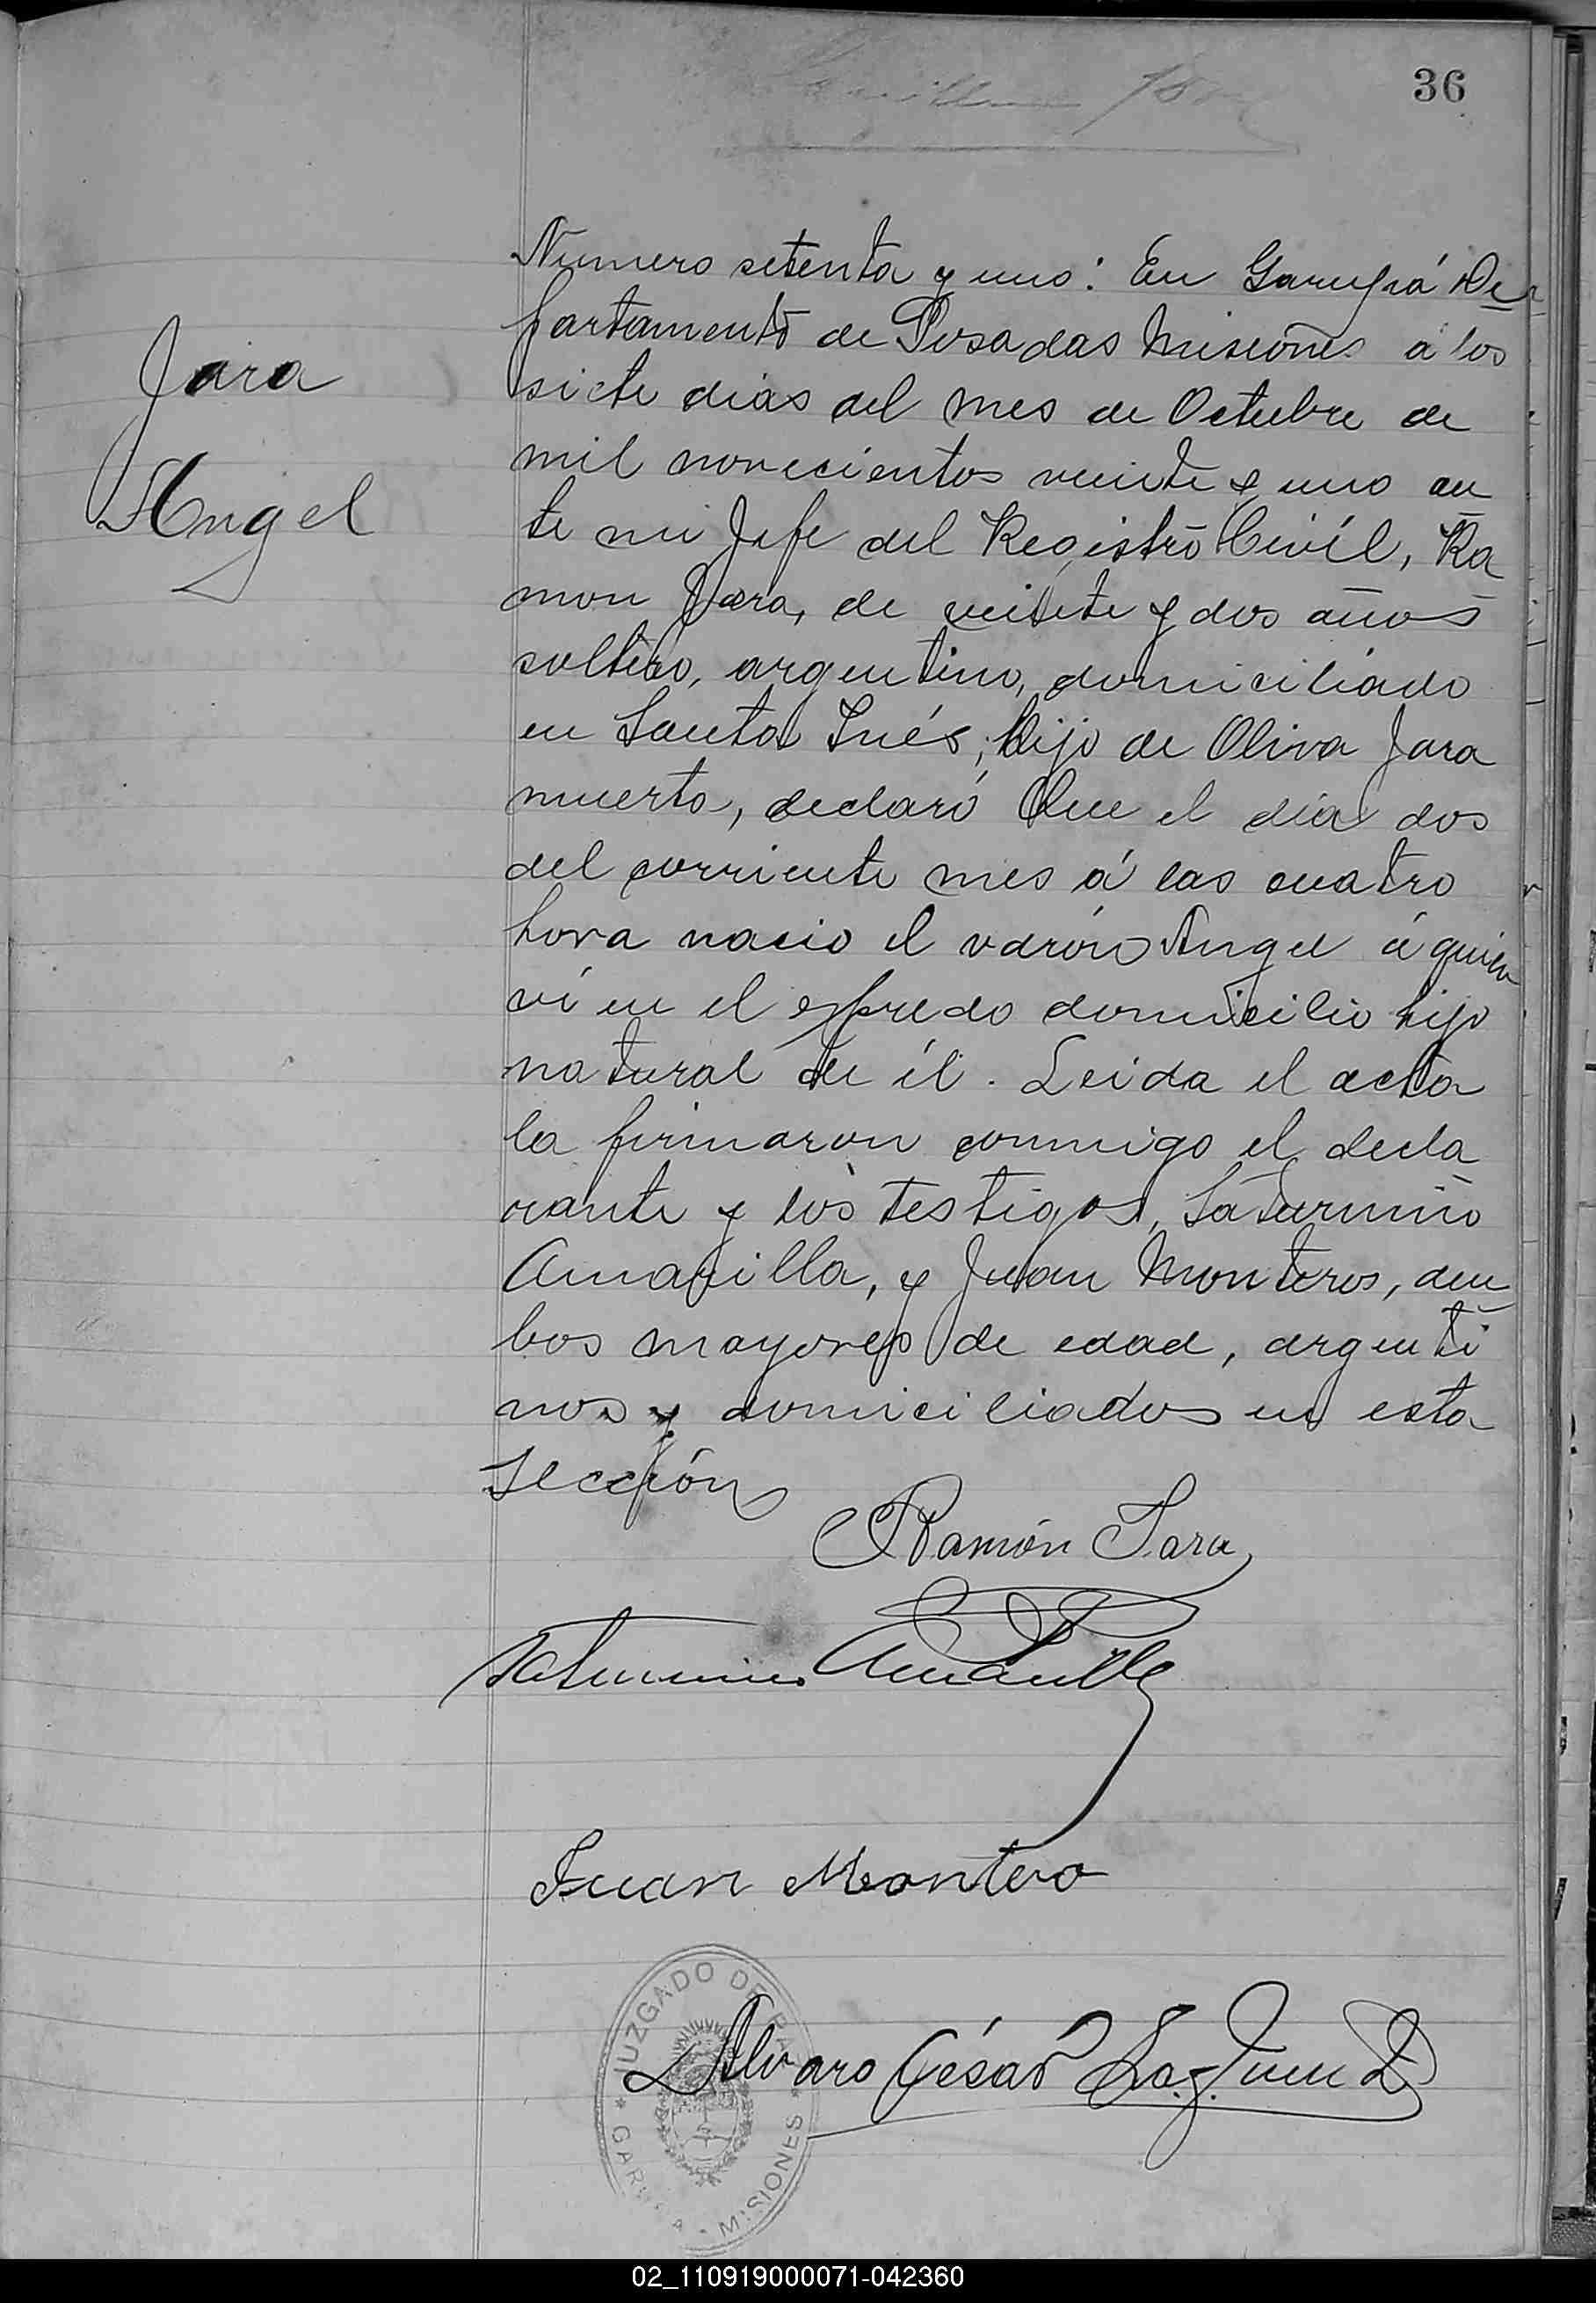 36
Jara
Angel
Numero setenta y uno: En Garupá De
partamento de Posadas Misiones á los
siete dias del mes de Octubre de
mil novecientos veinte y uno an
te mi Jefe del Registro Civíl, Ra
mon Jara, de veinte y dos años
soltero, argentino, domiciliado
en Santa Inés, hijo de Oliva Jara
muerta, declaró Que el dia dos
del corriente mes á las cuatro
hora nacio el varón Angel á quien
ví en el espredo domicilio hijo
natural de él. Leida el acta
la firmaron conmigo el decla
rante y los testigos, Saturnino
Amarilla, y Juan Monteros, am
bos mayores de edad, argenti
nos y domiciliados en esta
sección
Ramón Jara
Saturnino Amarilla
Juan Montero
JUZGADO DE PAZ
Alvaro César
* GARUPA - MISIONES *
02_110919000071-042360